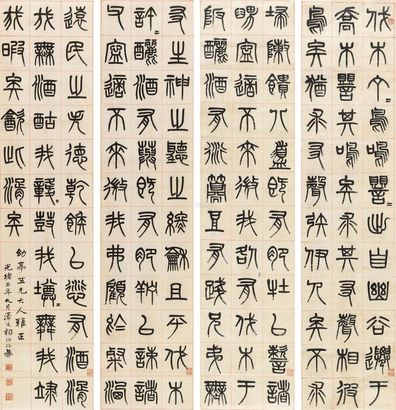 伐木丁=鳥鳴嚶=出自幽谷遷于
喬木嚶其鳴矣求其友聲相彼
鳥矣猶求友聲矧伊人矣不求
埽陳饋八簋既有肥牡以速諸
舅寧適不來微我有咎伐木于
阪釃酒有衍籩豆有踐兄弟無
友生神之聽之終龢且平伐木
許=釃酒有藇既有肥羜以速諸
父寧適不來微我弗顧於粲洒
遠民之失德乾餱以愆有酒湑
我無酒酤我坎=鼓我壿=舞我
我暇矣飲此湑矣
幼亭五兄大人雅正
光緒五年九月濠叟楊沂孫